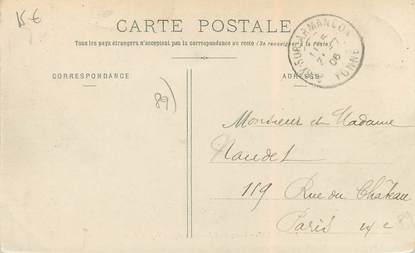 15 €
CARTE POSTALE
Tous les pays étrangers n'acceptent pas la correspondance au recto (Se renseigner à la poste)
CORRESPONDANCE
ADRESSE
89)
SUR-ARMANÇON
YONNE
06
Monsieur et Madame
Naudet
119 Rue du Château
Paris